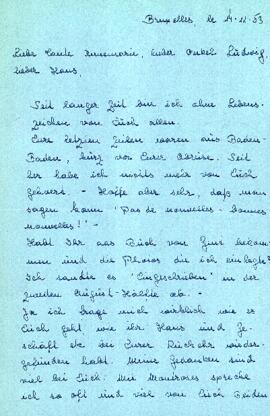 Bruxelles, le 4.11.53
Liebe Tante Annemarie, lieber Onkel Ludwig,
lieber Hans,
Seit langer Zeit bin ich ohne Lebens-
zeichen von Euch allen.
Eure letzten Zeilen waren aus Baden-
Baden, kurz vor Eurer Abreise. Seit
her habe ich nichts mehr von Euch
gehört. - Hoffe aber sehr, daß man
sagen kann "Pas de nouvelles - bonnes
nouvelles!" -
Habt Ihr das Buch von bekom-
men und die Photos die ich einlegte?
Ich sandte es "Eingeschrieben" in der
zweiten August-Hälfte ab. -
Ja ich frage mich wirklich wie es
Euch geht wie Ihr Hans und Ge-
schäft etc bei Eurer Rückkehr wieder-
gefunden habt. Meine Gedanken sind
viel bei Euch. Mit spreche
ich so oft und viel von Euch Beiden